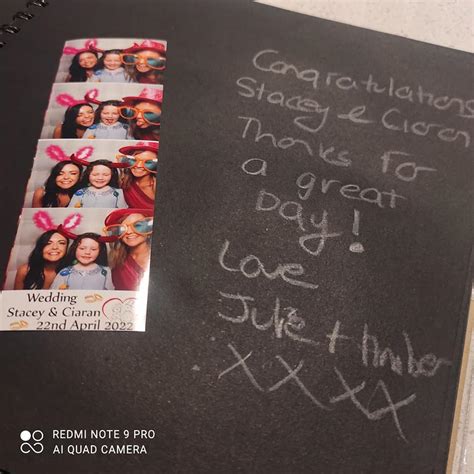 Congratulations
Stacey & Ciaran
Thanks for
a great
Day!
Love
Julie + Amber
XXXX
Wedding
Stacey & Ciaran
22nd April 2022
REDMI NOTE 9 PRO
AI QUAD CAMERA